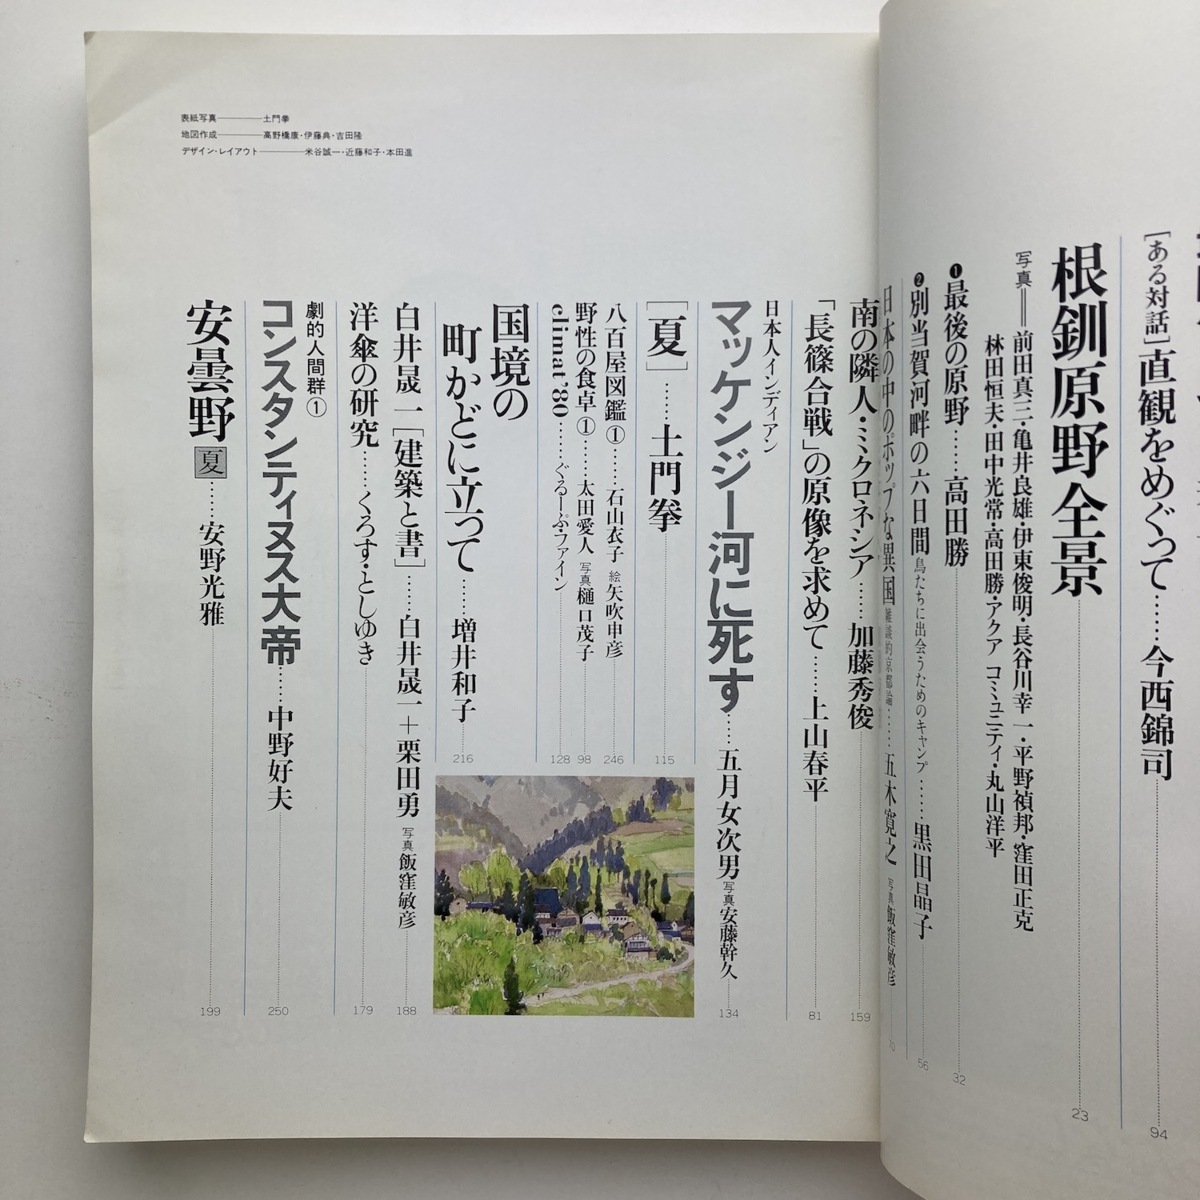 [ある対話]直観をめぐって……今西錦司
94
根釧原野全景
23
写真＝前田真三・亀井良雄・伊東俊明・長谷川幸一・平野禎邦・窪田正克
林田恒夫・田中光常・高田勝・アクア コミュニティ・丸山洋平
❶最後の原野……高田勝
32
❷別当賀河畔の六日間 鳥たちに出会うためのキャンプ……黒田晶子
56
日本の中のポップな異国 雑談的京都論……五木寛之 写真 飯窪敏彦
南の隣人・ミクロネシア……加藤秀俊
159
「長篠合戦」の原像を求めて……上山春平
81
日本人インディアン
マッケンジー河に死す……五月女次男 写真 安藤幹久
134
[夏]……土門拳
115
八百屋図鑑①……石山衣子 絵 矢吹申彦
246
野性の食卓①……太田愛人 写真 樋口茂子
98
climat'80……ぐるーぷ・ファイン
128
国境の
町かどに立って……増井和子
216
白井晟一[建築と書]……白井晟一＋栗田勇 写真 飯窪敏彦
188
洋傘の研究……くろす・としゆき
179
劇的人間群①
コンスタンティヌス大帝……中野好夫
250
安曇野 夏……安野光雅
199
表紙写真――土門拳
地図作成――高野橋康・伊藤典・吉田隆
デザイン・レイアウト――米谷誠一・近藤和子・本田進